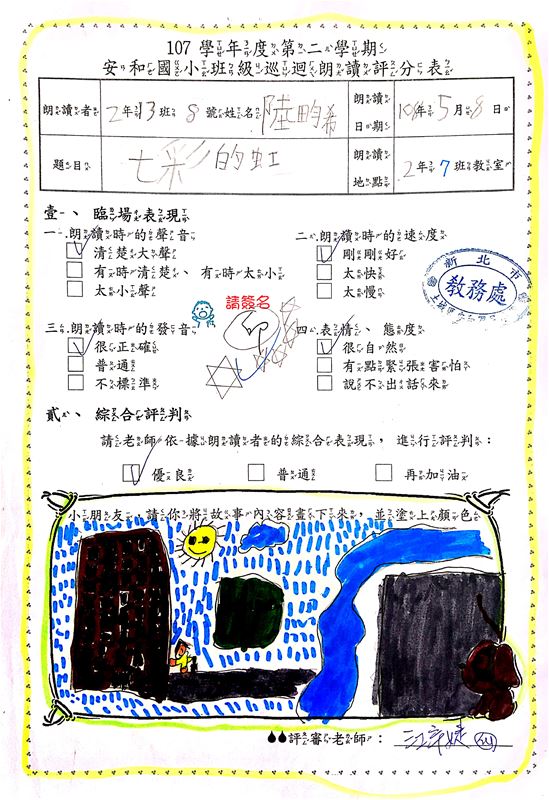 107 學年度第二學期
安和國小班級巡迴朗讀評分表
朗讀者 2年13班 8號姓名 陸昀希 朗讀日期 108年5月8日
題目 七彩的虹 朗讀地點 2年7班教室
壹、臨場表現
一、朗讀時的聲音 二、朗讀時的速度
清楚大聲 剛剛好
有時清楚、有時太小 太快
太小聲 太慢
新北市
教務處
請簽名
三、朗讀時的發音 四、表情、態度
很正確 很自然
普通 有點緊張害怕
不標準 說不出話來
貳、綜合評判
請老師依據朗讀者的綜合表現，進行評判：
優良 普通 再加油
小朋友，請你將故事內容畫下來，並塗上顏色
評審老師：